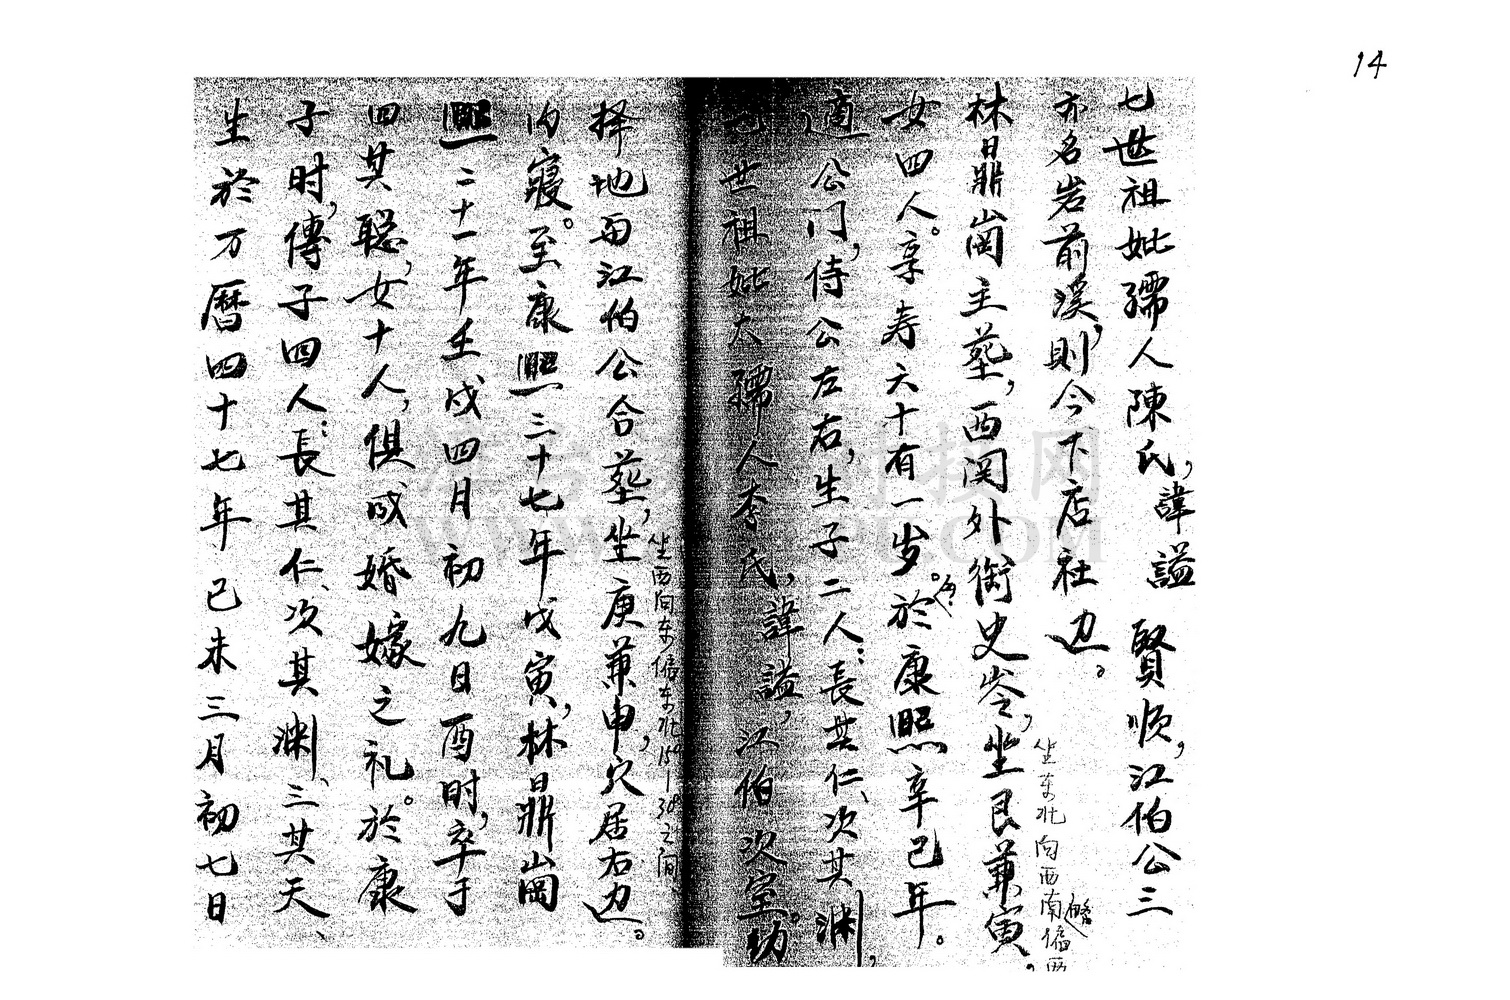 14
七世祖妣孺人陳氏,諱謚 賢順,江伯公三
亦名岩前溪,則今下店社边。
林鼎崗主墓,西関外衛史岺,坐艮兼寅。
坐东北向西南偏西
女四人。享寿六十有一岁。於康熙辛巳年。
適公门,侍公左右,生子二人:長其仁、次其渊,
七世祖妣太孺人李氏,諱謚,江伯次室。幼
坐西向东偏东北
之间
择地与江伯公合墓,坐庚兼申,穴居右边。
内寝。至康熙三十七年戊寅,林鼎崗
熙二十一年壬戌四月初九日酉时,卒于
四其聪,女十人,俱成婚嫁之礼。於康
子时,傳子四人:長其仁、次其渊、三其天、
生於万曆四十七年己未三月初七日